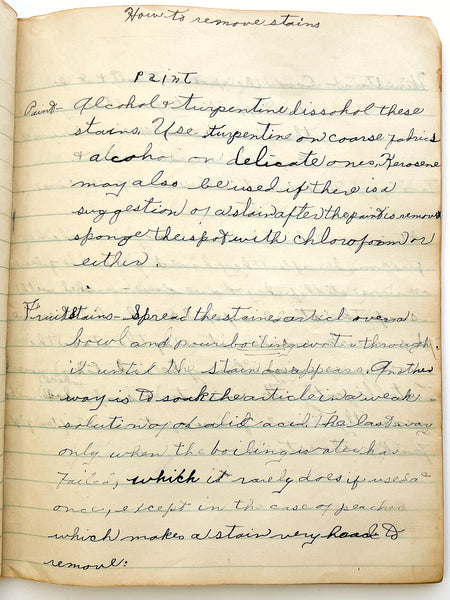 How to remove stains
Paint
Paint- Alcohol & turpentine dissohol these
stains. Use turpentine on coarse fabrics
& alcohol on delicate ones, Kerosene
may also be used if there is a
suggestion of a stain after the paint is removed
sponge the spot with chloroform or
either.
Fruit Stains- Spread the stained articl over a
bowl and pour boiling water through
it until the stain disappears. Another
way is to soak the article in a weak
solution of oxalic acid. The last way
only when the boiling water has
failed, which it rarely does if used at
once, except in the case of peaches
which makes a stain very hard to
remove.